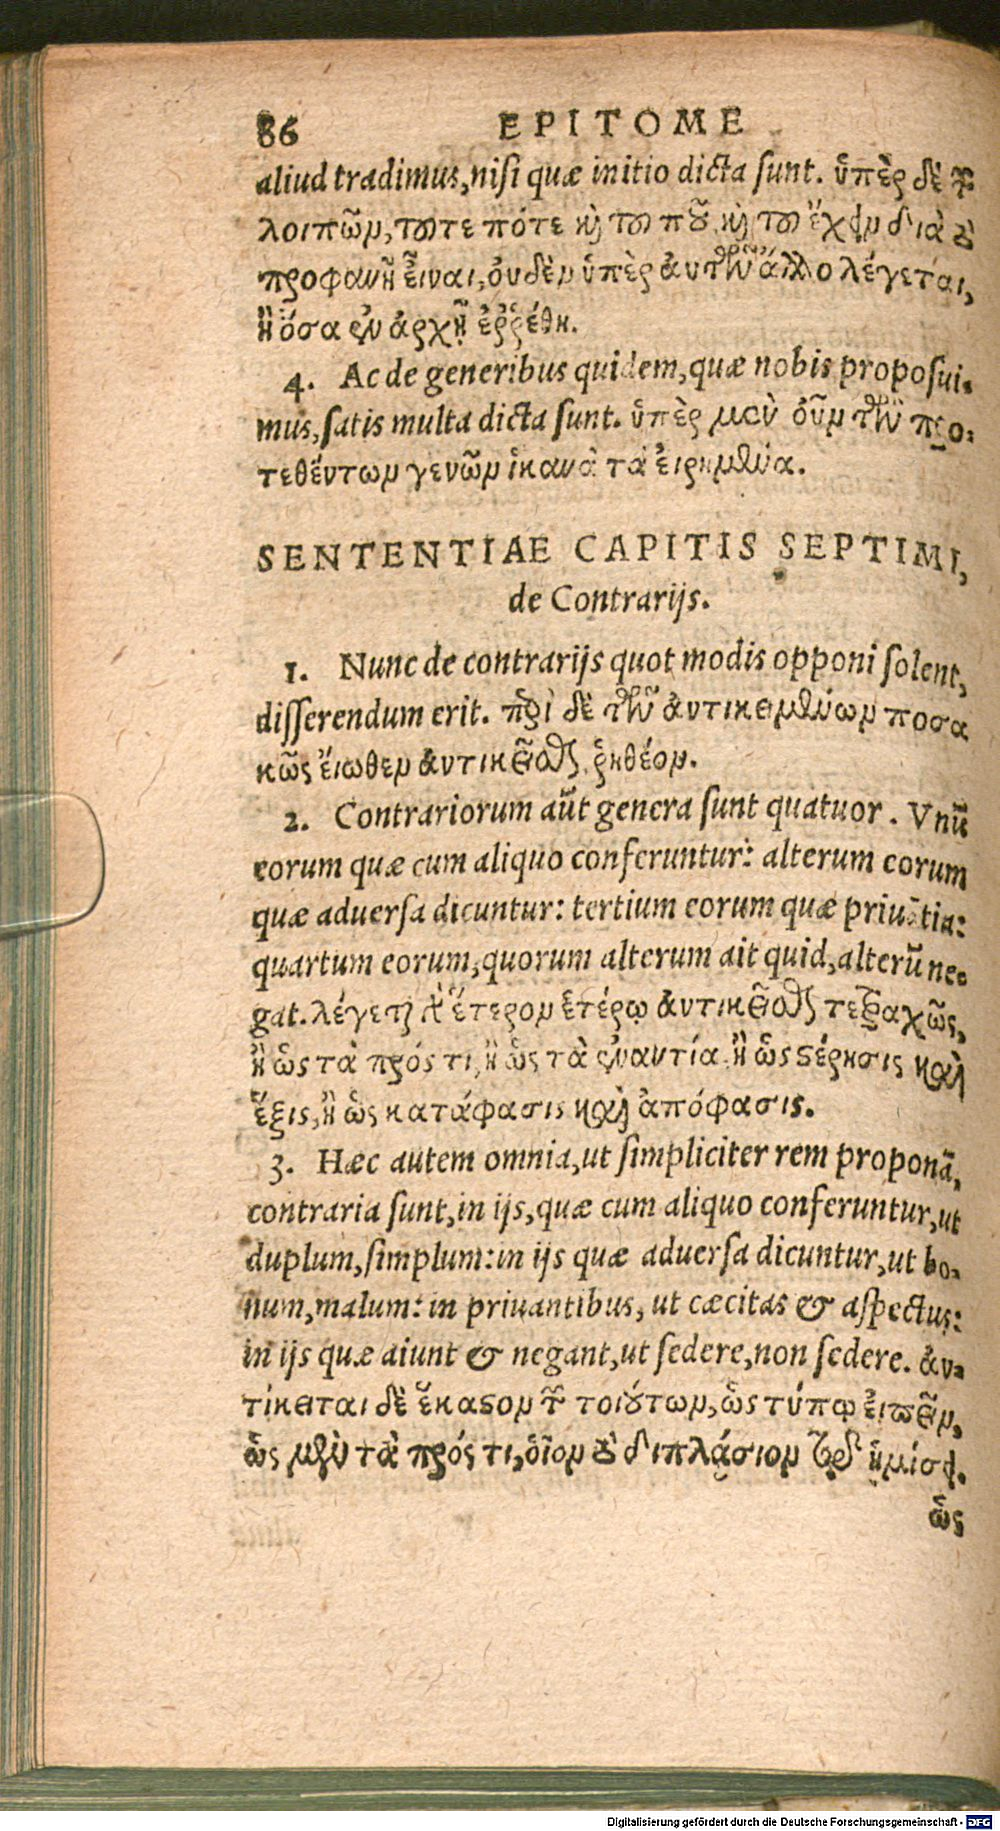 86 EPITOME
aliud tradimus, nisi quæ initio dicta sunt. ὑπὲρ δὲ τῶν
λοιπῶν, τοῦτε πότε κὶ τοῦ ποῦ, κὶ τοῦ ἔχειν διὰ τὸ
προφανῆ εἶναι, οὐδὲν ὑπὲρ ἀυτῶν ἄλλο λέγεται,
ἢ ὅσα ἐν ἀρχῇ ἐῤῥέθη.
4. Ac de generibus quidem, quæ nobis proposui-
mus, satis multa dicta sunt. ὑπὲρ μὲν οὖν τῶν προ-
τεθέντων γενῶν ἱκανὰ τὰ ἐιρημένα.
SENTENTIAE CAPITIS SEPTIMI,
de Contrarijs.
1. Nunc de contrarijs quot modis opponi solent,
disserendum erit. περὶ δὲ τῶν ἀντικειμένων ποσα
κῶς ἔιωθεν ἀντικεῖσθαι ῥηθέον.
2. Contrariorum aūt genera sunt quatuor. Vnū
eorum quæ cum aliquo conferuntur: alterum eorum
quæ aduersa dicuntur: tertium eorum quæ priuātia:
quartum eorum, quorum alterum ait quid, alterū ne-
gat. λέγεται δὲ ἕτερον ἑτέρῳ ἀντικεῖσθαι τετραχῶς,
ἢ ὡς τὰ πρός τι, ἢ ὡς τὰ ἐναντία ἢ ὡς στέρησις καὶ
ἕξις, ἢ ὡς κατάφασις καὶ ἀπόφασις.
3. Hæc autem omnia, ut simpliciter rem proponā,
contraria sunt, in ijs, quæ cum aliquo conferuntur, ut
duplum, simplum: in ijs quæ aduersa dicuntur, ut bo-
num, malum: in priuantibus, ut cæcitas & aspectus:
in ijs quæ aiunt & negant, ut sedere, non sedere. ἀν-
τίκειται δὲ ἕκαστον τῶν τοιούτων, ὡς τύπῳ ἐιπεῖν,
ὡς μὲν τὰ πρός τι, οἷον τὸ διπλάσιον τῷ ἡμίσει.
ὡς
Digitalisierung gefördert durch die Deutsche Forschungsgemeinschaft - DFG